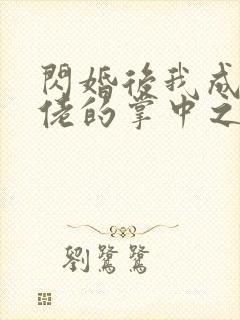 閃婚後我成
佬的掌中之
劉鷺鷺